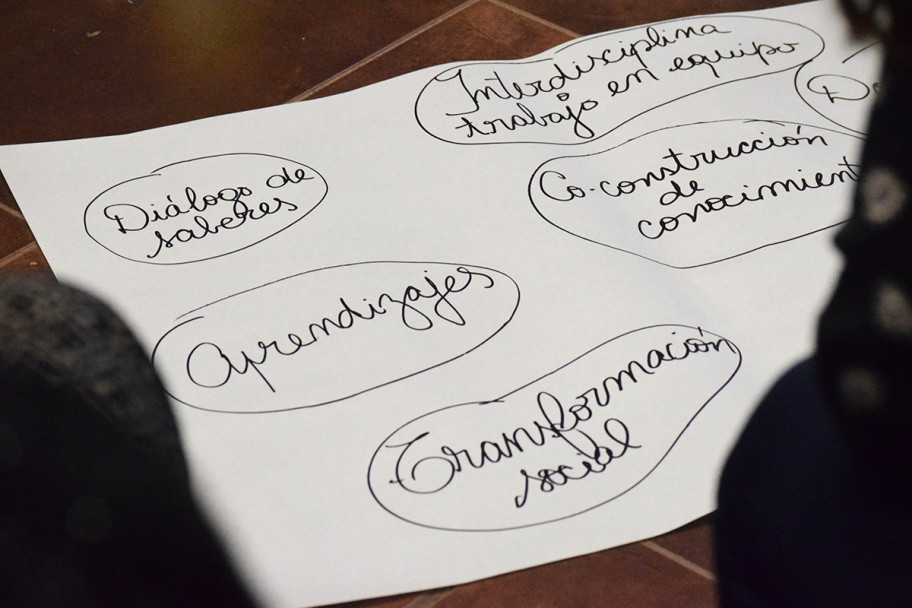 Interdisciplina
trabajo en equipo
Diálogo de
saberes
Co-construcción
de
Aprendizajes
Transformación
social